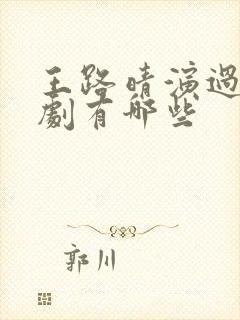 王路晴演過
劇有哪些
郭川